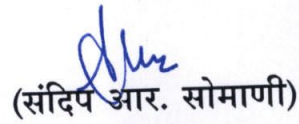 (संदिप आर. सोमाणी)